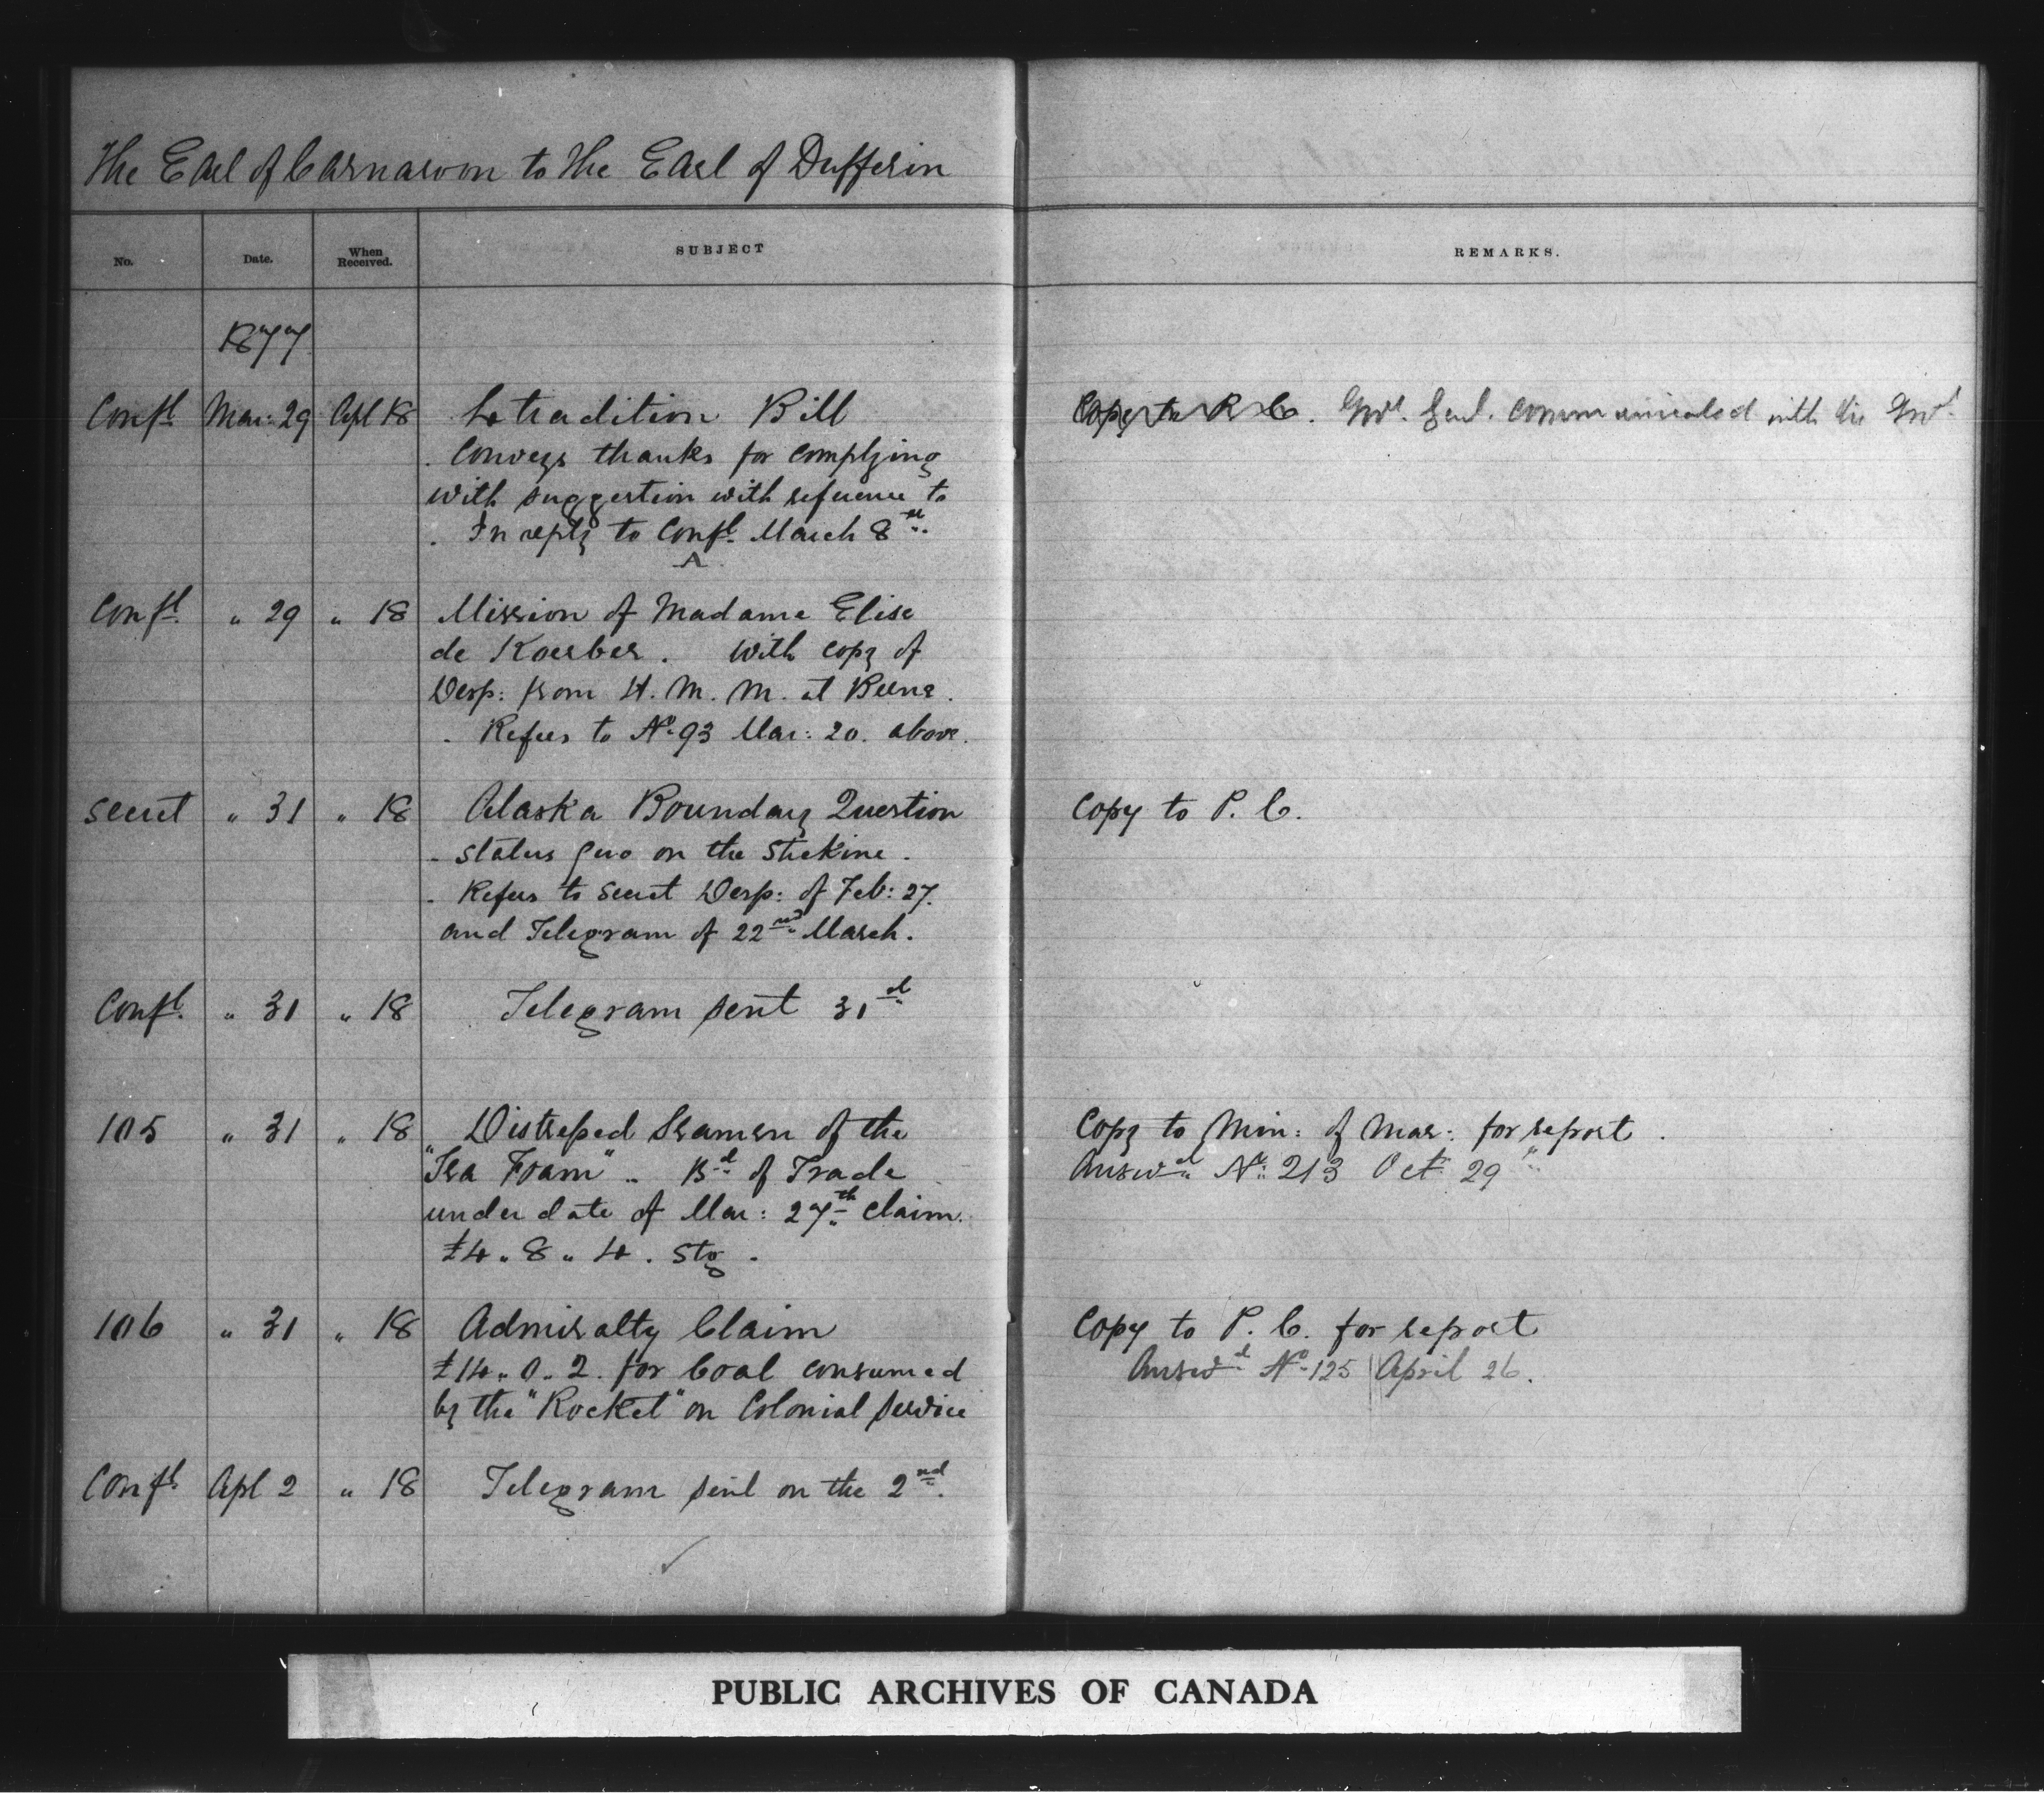 The Earl of Carnarvon to the Earl of Dufferin
No. Date. When Received. SUBJECT REMARKS.
1877
Confl Mar: 29 Apl 18 Extradition Bill Copy to P. C. Govr. Genl. communicated with his Govt.
. Conveys thanks for complying
with suggestion with reference to
. In reply to Confl. March 8th
A
Confl. " 29 " 18 Mission of Madame Elise
de Koerber. With copy of
Desp: from H. M. M. at Berne.
. Refers to No. 93 Mar: 20. above.
Secret " 31 " 18 Alaska Boundary Question Copy to P. C.
- Status quo on the Stekine.
. Refers to Secret Desp: of Feb: 27.
and Telegram of 22nd March.
Confl. " 31 " 18 Telegram sent 31st
105 " 31 " 18 Distressed Seamen of the Copy to Min: of Mar: for report.
"Sea Foam" .. Bd of Trade Answd No: 213 Oct 29
under date of Mar: 27th claim.
£4 " 8 " 4 . Stg.
106 " 31 " 18 Admiralty Claim Copy to P. C. for report
£14 " 0 " 2. for Coal consumed Answd No. 125 April 26.
by the "Rocket" on Colonial Service
Confl. Apl 2 " 18 Telegram sent on the 2nd.
PUBLIC ARCHIVES OF CANADA